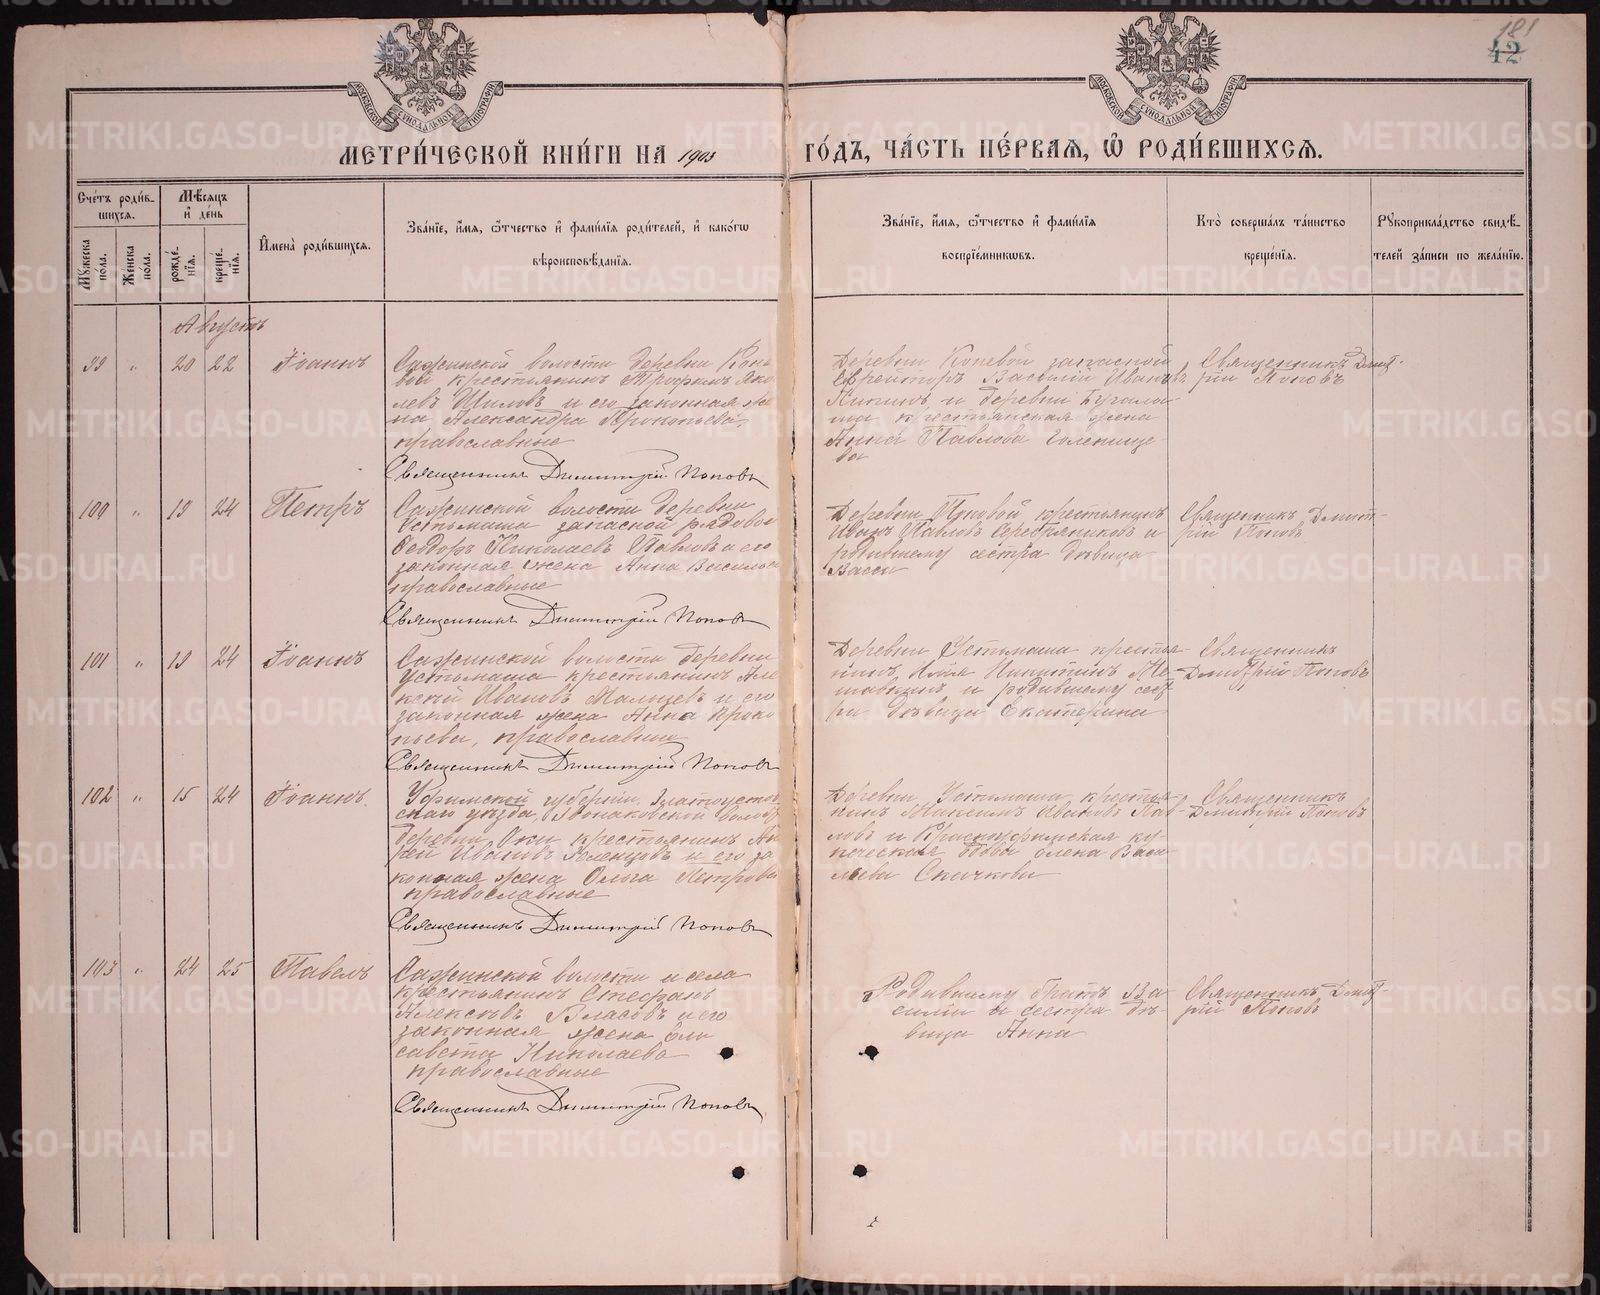 181
42
МОСКОВСКОЙ СѴНОДАЛЬНОЙ ТИПОГРАФІИ
МОСКОВСКОЙ СѴНОДАЛЬНОЙ ТИПОГРАФІИ
МЕТРИ́ЧЕСКОЙ КНИ́ГИ НА 1903 ГО́ДЪ, ЧА́СТЬ ПЕ́РВАЯ, Ѡ РОДИ́ВШИХСЯ.
Сче́тъ роди́в-
шихся.
Мѣ́сяцъ
и҆ де́нь
Мꙋжеска пола.
Же́нска пола.
рожде́-
нїя.
креще́-
нїя.
И҆мена̀ роди́вшихся.
Зва́нїе, и҆́мя, ѻ҆́тчество и҆ фами́лїя роди́телей, и҆ како́гѡ
вѣроисповѣ́данїя.
Зва́нїе, и҆́мя, ѻ҆́тчество и҆ фами́лїя
воспрїе́мникѡвъ.
Кто̀ соверша́лъ та́инство
креще́нїя.
Рꙋкоприкла́дство свидѣ́-
телей за́писи по жела́нїю.
Августъ
99 „ 20 22 Іоаннъ
Сажинской волости деревни Коне
вой крестьянинъ Трофимъ Яко
левъ Шиловъ и его законная же
на Александра Прокопьева,
православные
Священникъ Димитрій Поповъ
Деревни Коневой запасной
Ефрейторъ Василій Ивановъ
и деревни
крестьянская жена
Анна Павлова Голенище
ва
Священникъ Дмит-
рій Поповъ
100 „ 19 24 Петръ
Сажинской волости деревни
Устьмаша запасной рядовой
Феодоръ Николаевъ Павловъ и его
законная жена Анна Василье
православные
Священникъ Димитрій Поповъ
Деревни крестьянинъ
Иванъ Павловъ Серебряниковъ и
родившему сестра дѣвица
Васса
Священникъ Дмит-
рій Поповъ
101 „ 19 24 Іоаннъ
Сажинской волости деревни
Устьмаша крестьянинъ Але
ксѣй Ивановъ Мальцевъ и его
законная жена Анна Проко
пьева, православные
Священникъ Димитрій Поповъ
Деревни Устьмаша крестья-
нинъ Илья Никитинъ Ме-
и родившему сест
ра дѣвица Екатерина
Священникъ
Дмитрій Поповъ
102 „ 15 24 Іоаннъ.
Уфимской губерніи, Златоустов
скаго уѣзда, волости
деревни Оки крестьянинъ Анд
рей Ивановъ и его за
конная жена Ольга Петрова
православные
Священникъ Димитрій Поповъ
Деревни Устьмаша крестья-
нинъ Максимъ Ивановъ Пав-
ловъ и Красноуфимская ку-
печеская вдова Елена Васи-
льева Скачкова
Священникъ
Дмитрій Поповъ
103 „ 24 25 Павелъ
Сажинской волости и села
крестьянинъ Стефанъ
Алексѣевъ Власовъ и его
законная жена Ели
савета Николаева
православные
Священникъ Димитрій Поповъ
Родившему братъ Ва
силій и сестра дѣ
вица Анна
Священникъ Дмит-
рій Поповъ
METRIKI.GASO-URAL.RU